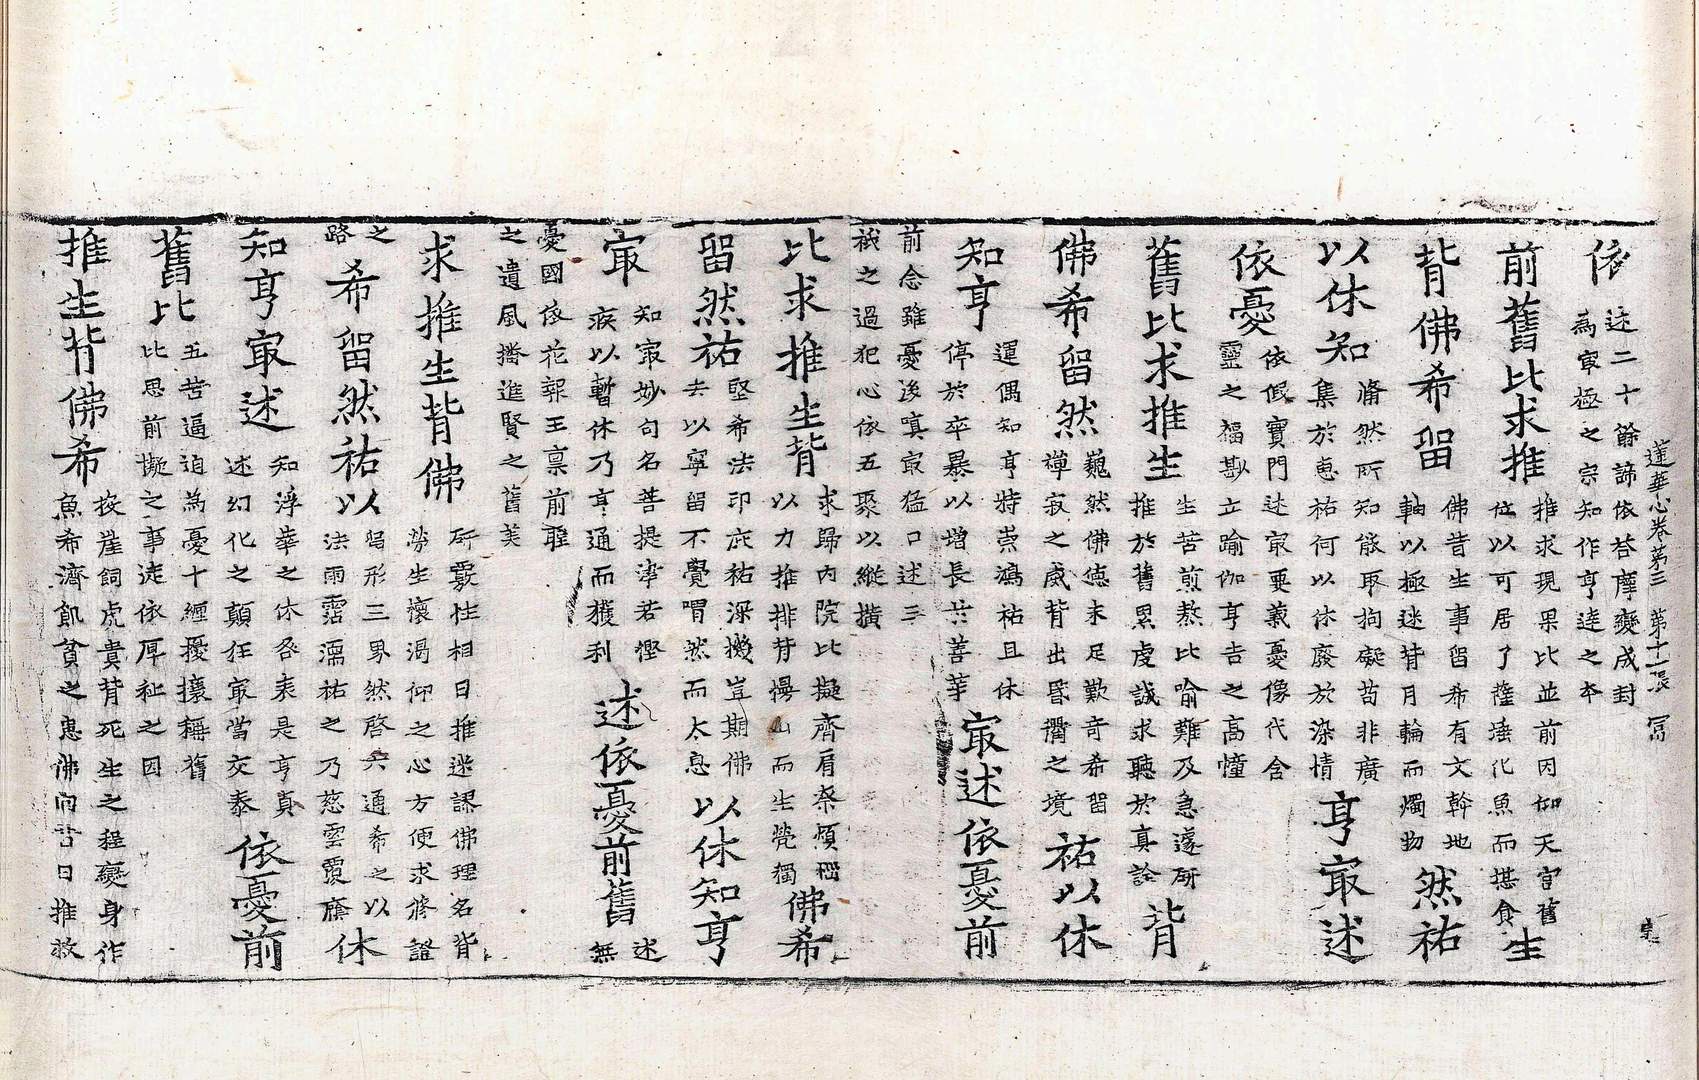 蓮華心卷第三 第十一張 冨
依
述二十餘諦依苔摩變成封
為㝡極之宗知作亨逵之本
前舊比求推
推求現果比並前因仰天宮舊
位以可居了薩埵化魚而堪食
生
背佛希留
佛昔生事留希有文幹地
軸以極迷背月輪而燭物
然祐
以休知
脩然所知能取拘礙苔非廣
集於惠祐何以休廢於染情
亨㝡述
依憂
依假寶門述㝡要義憂像代含
靈之福斟立踰伽亨吉之高幢
舊比求推生
生苦煎熬比喻難及急遽研
推於舊累虔誠求聽於真詮
背
佛希留然
巍然佛德未足歎奇希留
禪寂之感背出昏衢之境
祐以休
知亨
運偶知亨特崇鴻祐且休
停於卒暴以增長共善華
㝡述依憂前
前念雖憂後嗔㝡猛口述三
祇之過犯心依五聚以縱橫
比求推生背
求歸內院比擬齊肩奈煩惱
以力推排背慢山而生煢獨
佛希
留然祐
堅希法印庇祐深機豈期佛
去以寧留不覺喟然而太息
以休知亨
㝡
知㝡妙句名菩提寧若慳
疾以暫休乃亨通而獲利
述依憂前舊
述
無
憂國依花報王稟前聖
之遺風播進賢之舊美
求推生背佛
研覈性相日推迷謬佛理名背
勞生懷渴仰之心方便求修證
之
路
希留然祐以
留形三界然啓六通希之以
法雨霑濡祐之乃慈雲覆廕
休
知亨㝡述
知浮華之休咎表是亨真
述幻化之顛狂㝡當交泰
依憂前
舊比
五苦逼迫為憂十纏擾攘稱舊
比思前擬之事逵依厚祉之因
推生背佛希
投崖飼虎貴背死生之程變身作
魚希濟飢貧之患佛向昔日推救